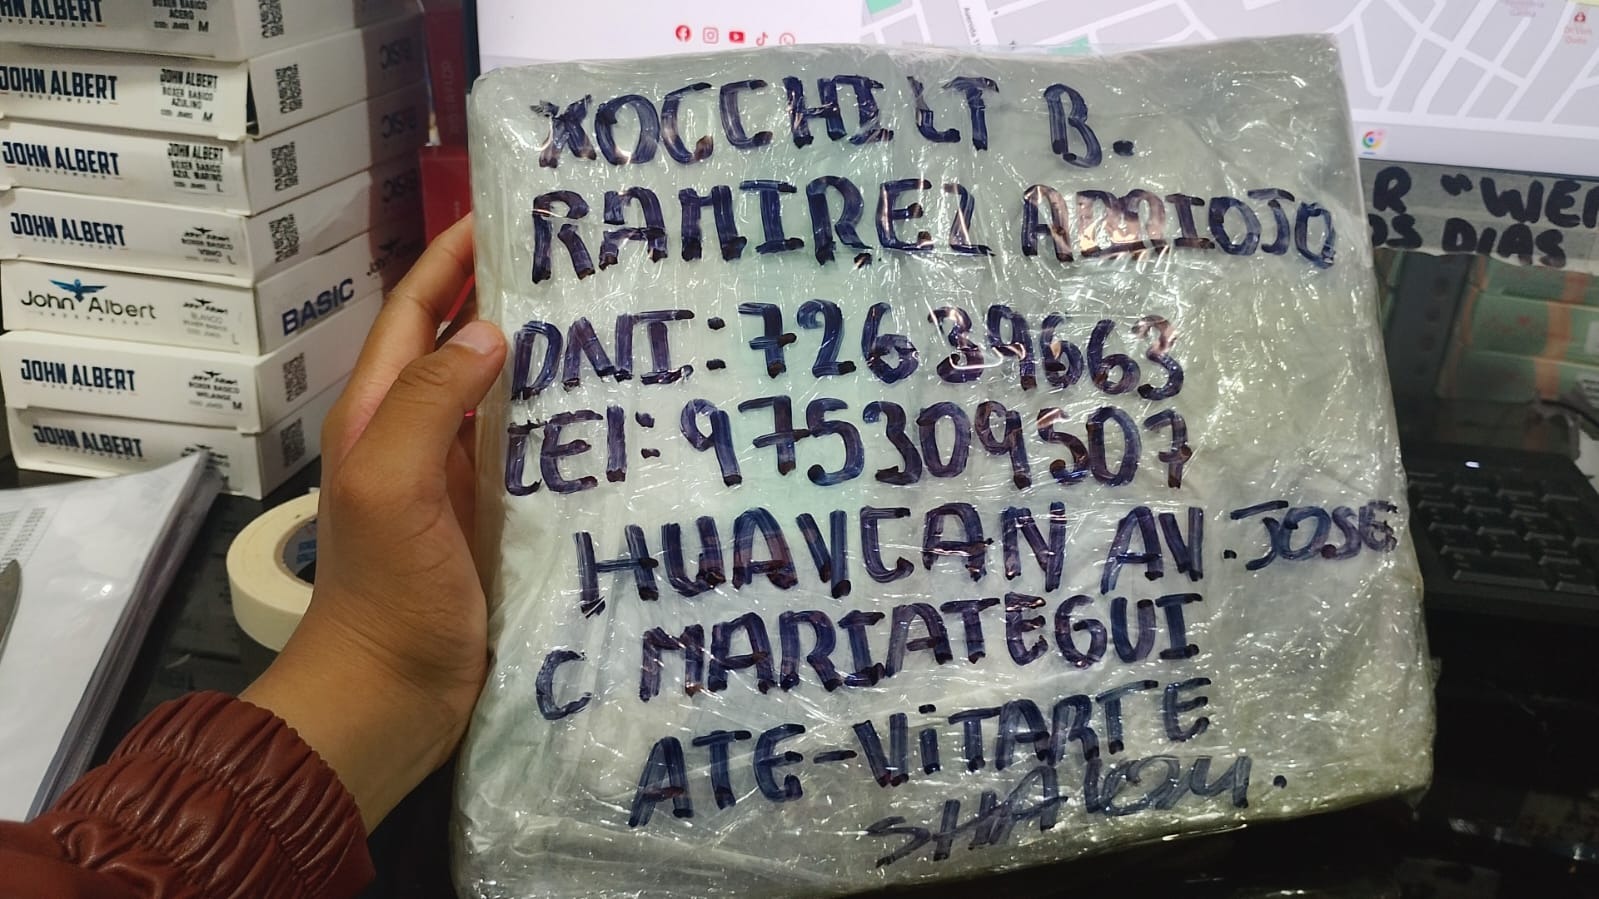 JOHN ALBERT
UNDERWEAR
BOXER BASICO
ACERO
M
JOHN ALBERT
JOHN ALBERT
BOXER BASICO
AZULINO
M
BASIC
JOHN ALBERT
JOHN ALBERT
BOXER BASICO
AZUL MARINO
L
BASIC
JOHN ALBERT
BOXER BASICO
VINO
L
BASIC
John Albert
UNDERWEAR
BLANCO
BOXER BASICO
L
BASIC
JOHN ALBERT
BOXER BASICO
MELANGE
M
JOHN ALBERT
XOCCHILT B.
RAMIREZ
DNI: 72639663
tEl: 975309507
HUAYCAN AV. JOSE
C MARIATEGUI
ATE-ViTARTE
SHALOM.
R "WER
OS DIAS